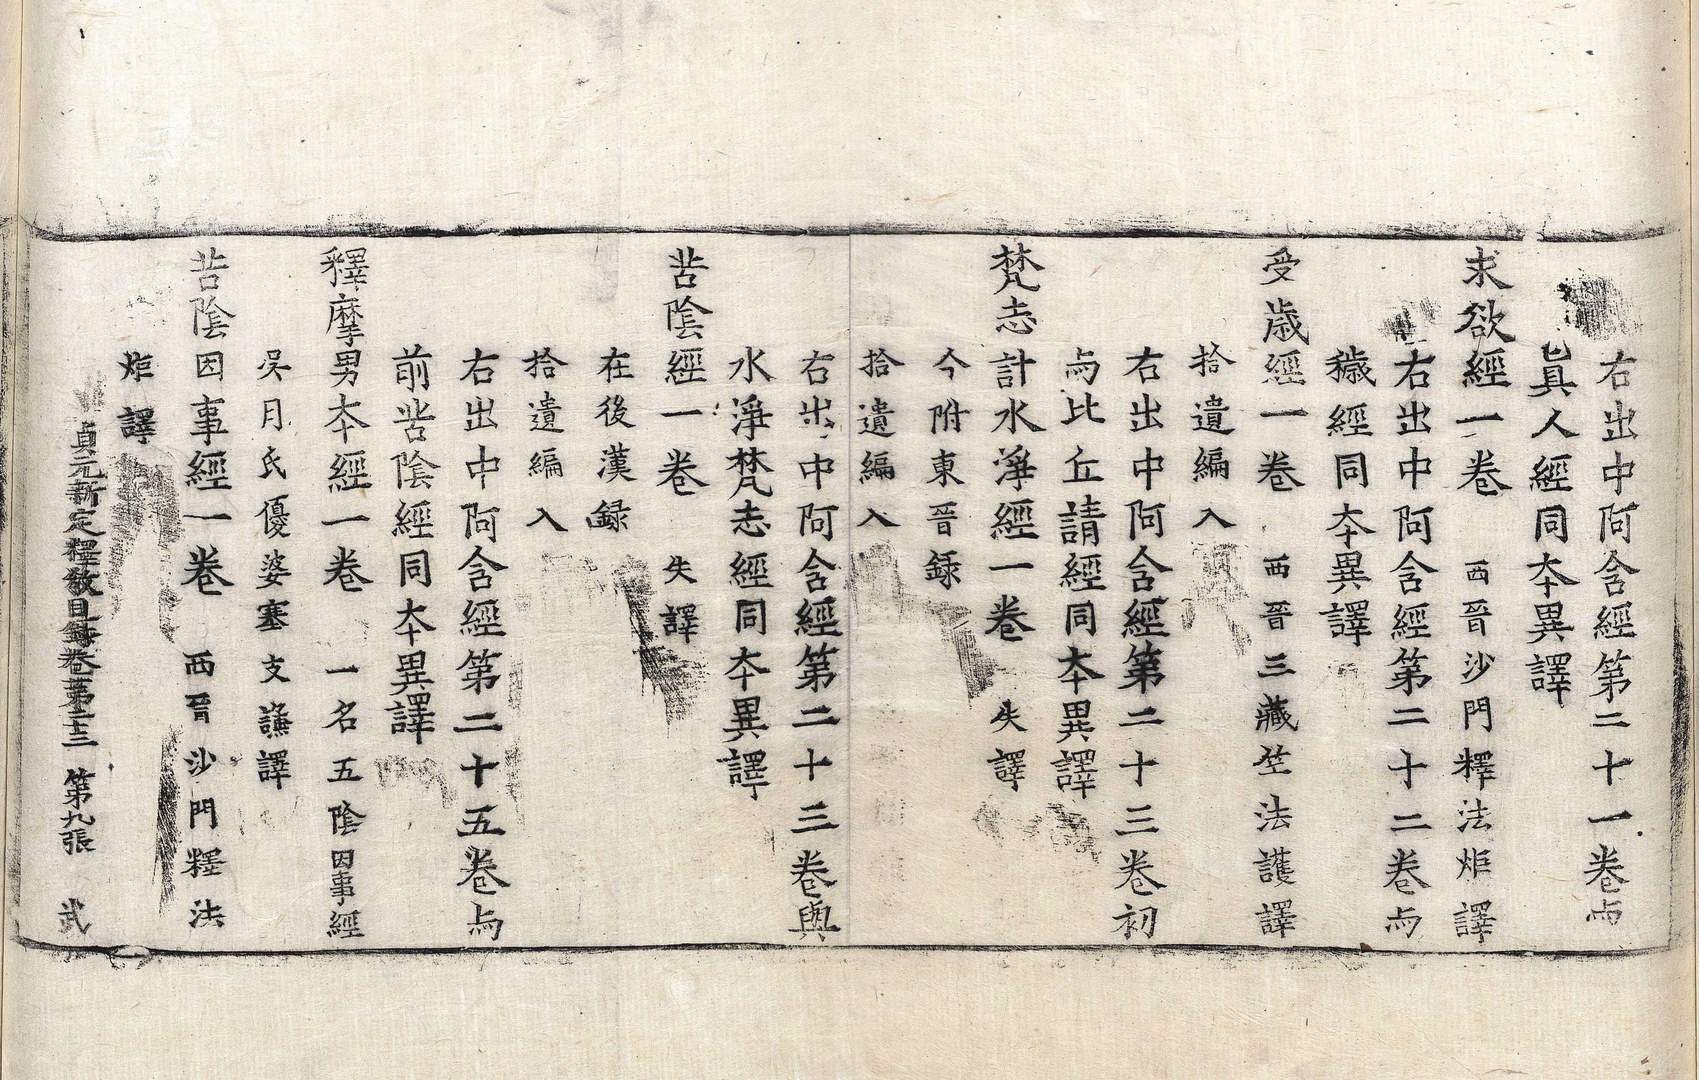 右出中阿含經第二十一卷与
真人經同本異譯
求欲經一卷 西晉沙門釋法炬譯
右出中阿含經第二十二卷与
穢經同本異譯
受歳經一卷 西晉三藏竺法護譯
拾遺編入
右出中阿含經第二十三卷初
与比丘請經同本異譯
梵志計水淨經一卷 失譯
今附東晉録
拾遺編入
右出中阿含經第二十三卷與
水淨梵志經同本異譯
苦陰經一卷 失譯
在後漢録
拾遺編入
右出中阿含經第二十五卷与
前苦陰經同本異譯
釋摩男本經一卷 一名五陰因事經
吳月氏優婆塞支謙譯
苦陰因事經一卷 西晉沙門釋法
炬譯
貞元新定釋教目録卷第二十三 第九張 武